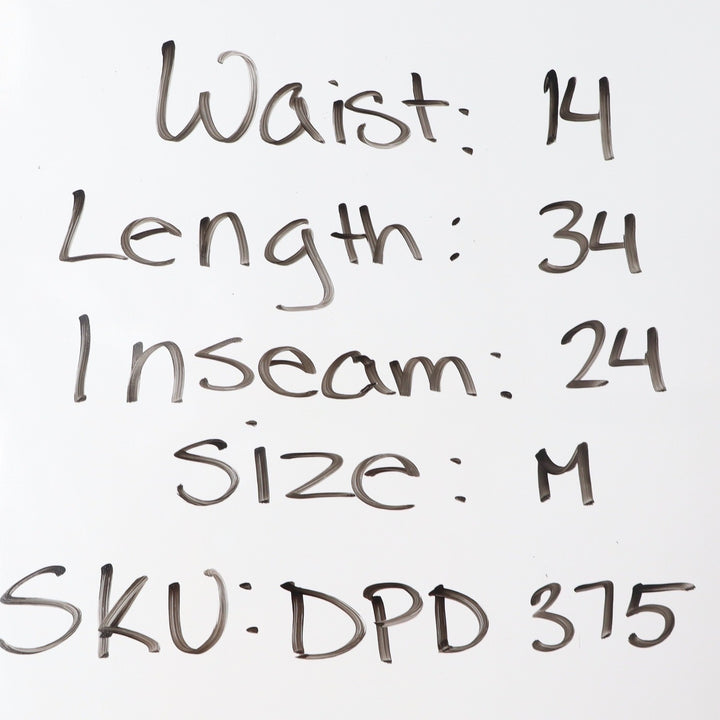 Waist: 14
Length: 34
Inseam: 24
Size: M
SKU: DPD 375